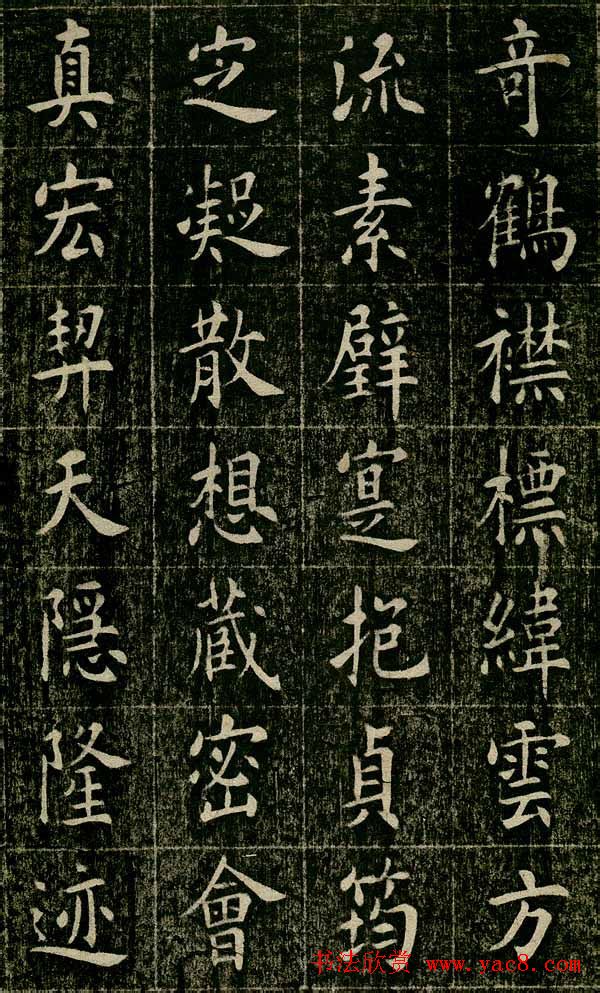 竒鶴襟標緯雲方
流素辟寔抱貞筠
定凝散想蔵密會
真宏契天隱隆迹
书法欣赏 www.yac8.com